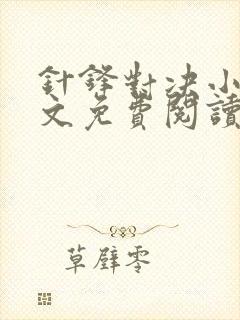 針鋒對决小
文免費閱讀
草壁零